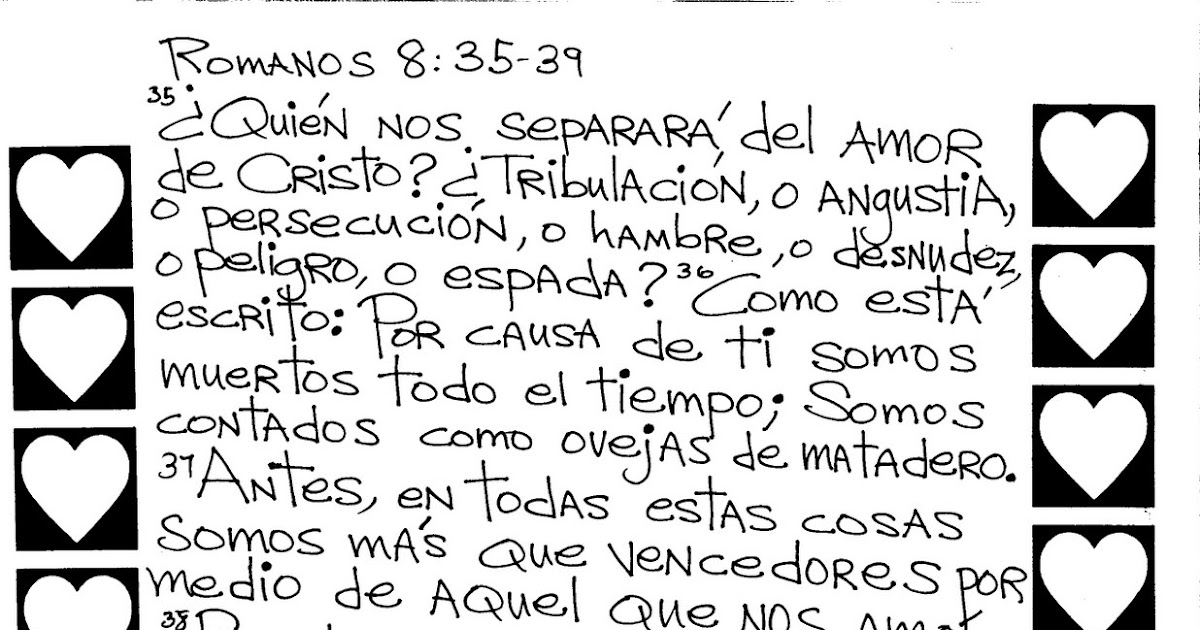 Romanos 8:35-39
35 ¿Quién nos separará del amor
de Cristo? ¿Tribulación, o angustia,
o persecución, o hambre, o desnudez,
o peligro, o espada? 36 Como está
escrito: Por causa de ti somos
muertos todo el tiempo; Somos
contados como ovejas de matadero.
37 Antes, en todas estas cosas
somos más que vencedores por
medio de aquel que nos
38